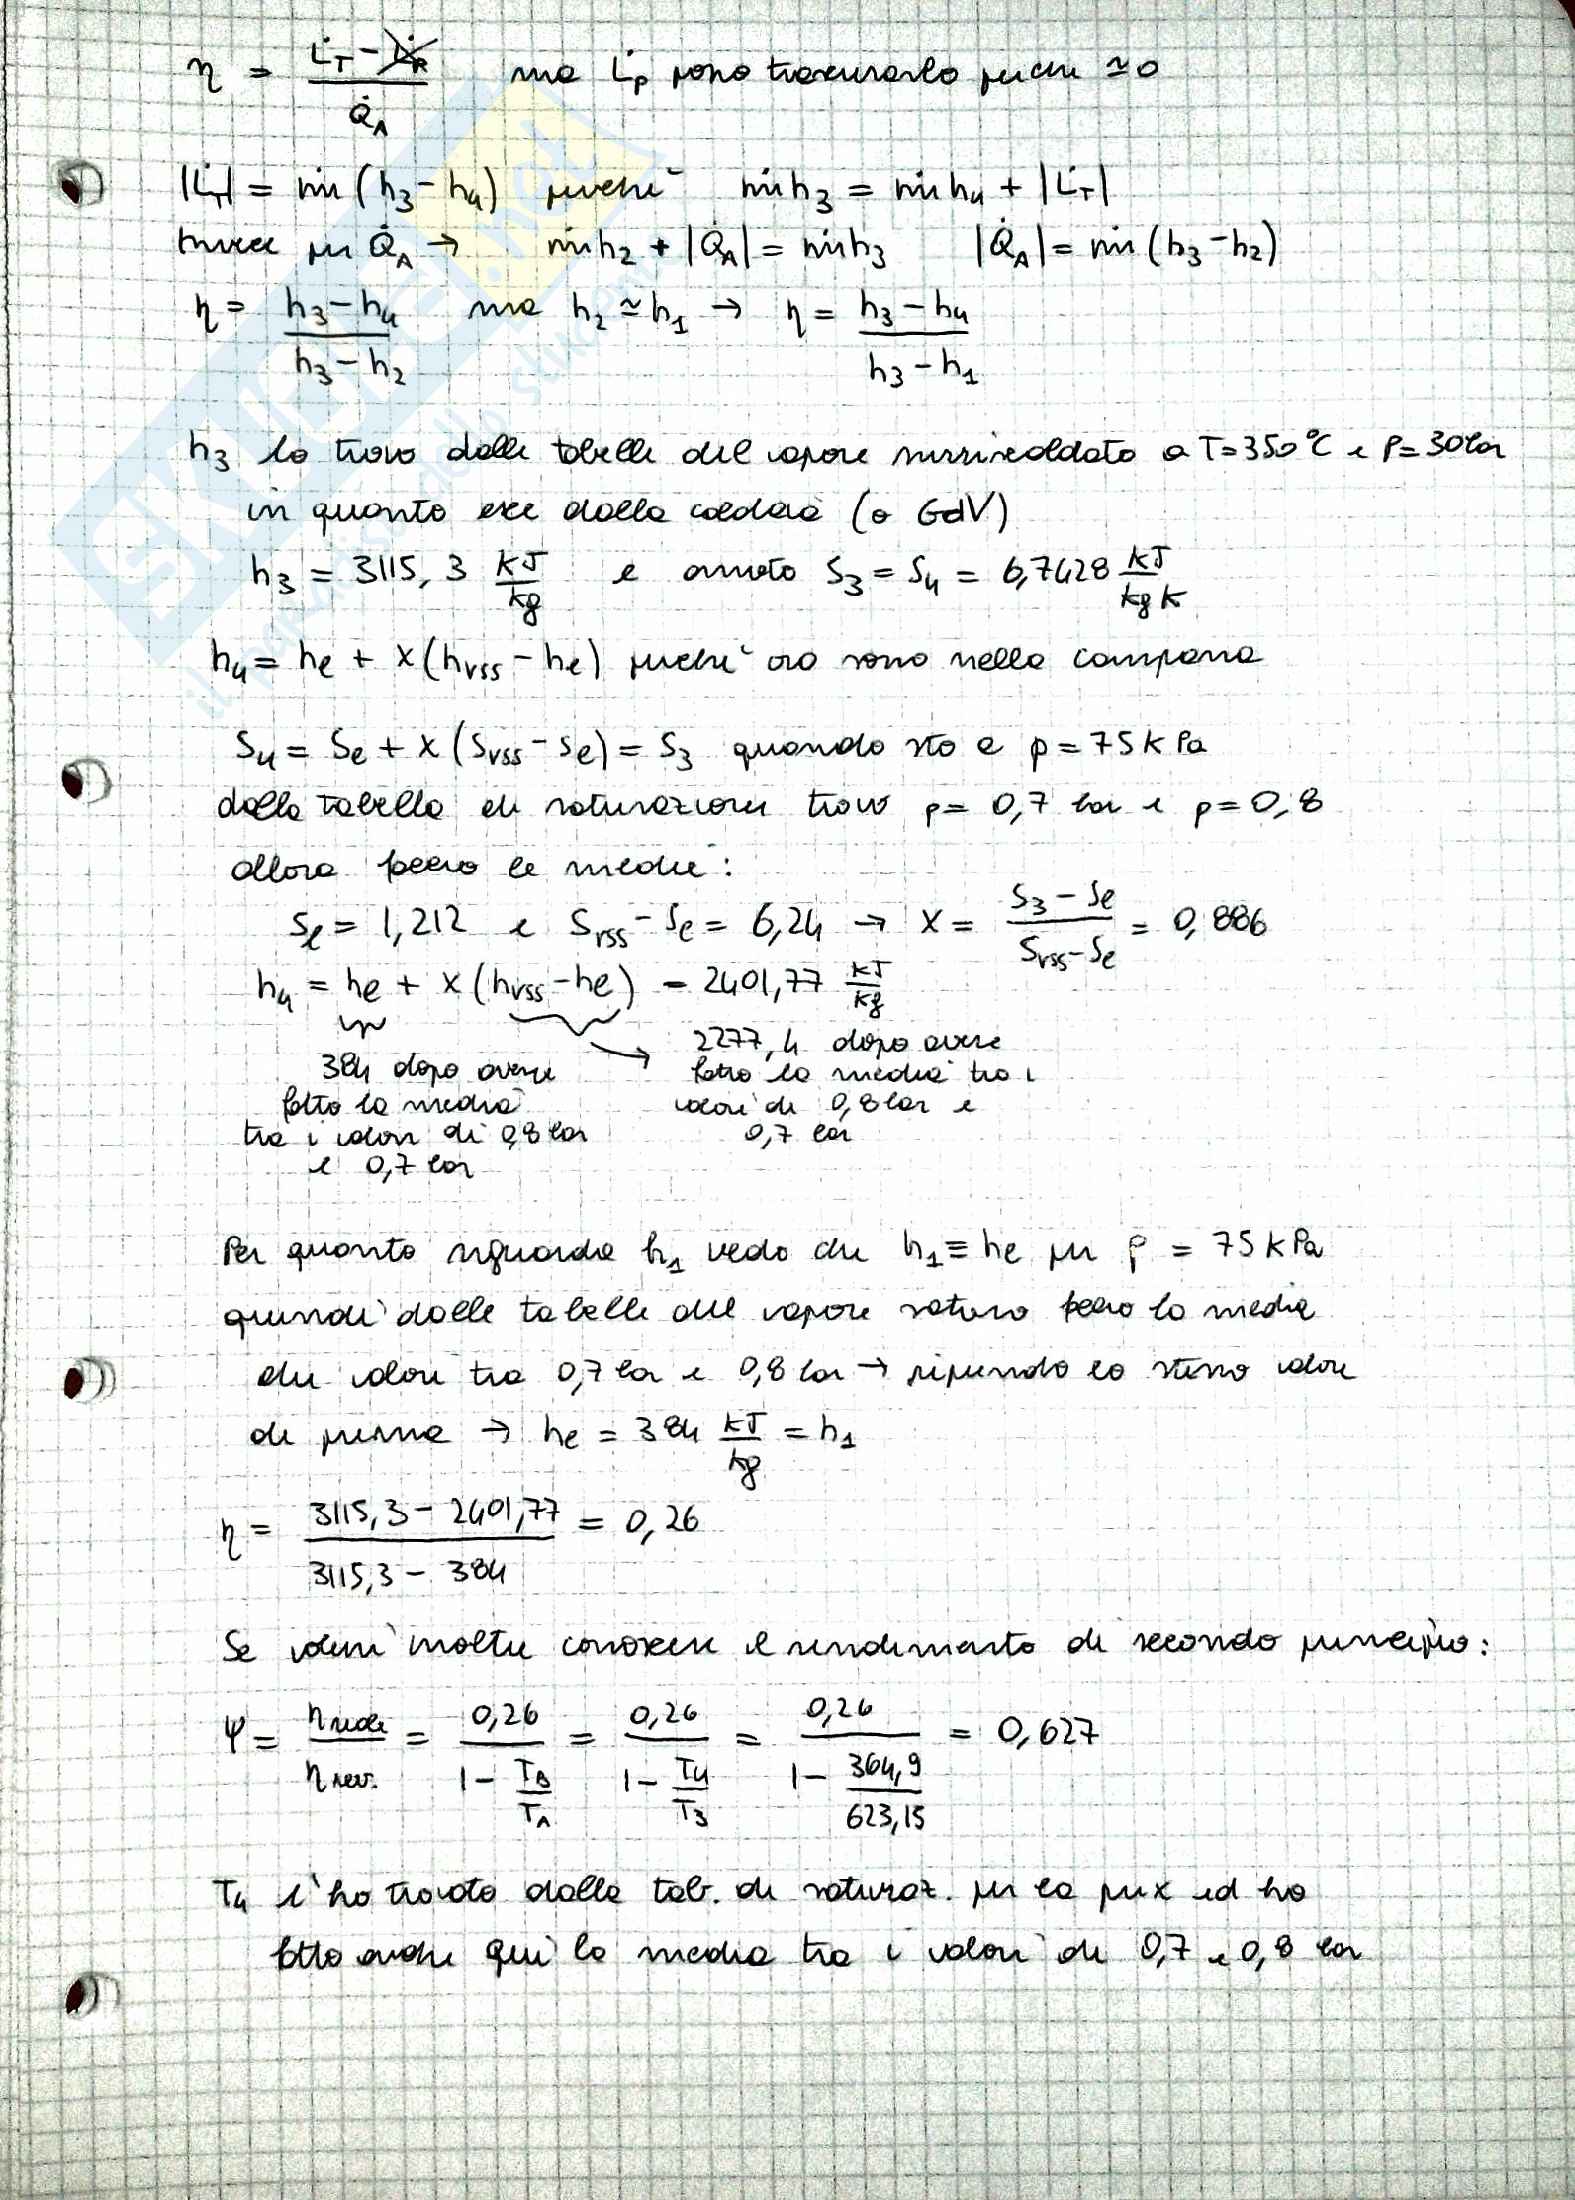 η = (L̇T - L̇P) / Q̇A ma L̇p posso trascurarlo perché ≃ 0
|L̇T| = ṁ (h3 - h4) perché ṁh3 = ṁh4 + |L̇T|
invece per Q̇A → ṁh2 + |Q̇A| = ṁh3 |Q̇A| = ṁ (h3 - h2)
η = (h3 - h4) / (h3 - h2) ma h2 ≃ h1 → η = (h3 - h4) / (h3 - h1)
h3 lo trovo dalle tabelle del vapore surriscaldato a T=350°C e P=30bar
in quanto esce dalla caldaia (o GdV)
h3 = 3115,3 kJ/kg e annoto S3 = S4 = 6,7428 kJ/kg K
h4 = he + x (hvss - he) perché ora sono nella campana
S4 = Se + x (Svss - Se) = S3 quando sto a p = 75 kPa
dalla tabella di saturazione trovo p = 0,7 bar e p = 0,8
allora faccio le medie:
Se = 1,212 e Svss - Se = 6,24 → x = (S3 - Se) / (Svss - Se) = 0,886
h4 = he + x (hvss - he) = 2401,77 kJ/kg
384 dopo avere
fatto la media
tra i valori di 0,8 bar
e 0,7 bar
2277,4 dopo avere
fatto la media tra i
valori di 0,8 bar e
0,7 bar
Per quanto riguarda h1 vedo che h1 ≡ he per p = 75 kPa
quindi dalle tabelle del vapore saturo faccio la media
dei valori tra 0,7 bar e 0,8 bar → riprendo lo stesso valore
di prima → he = 384 kJ/kg = h1
η = (3115,3 - 2401,77) / (3115,3 - 384) = 0,26
Se volessi inoltre conoscere il rendimento di secondo principio:
ψ = η reale / η rev. = 0,26 / (1 - TB/TA) = 0,26 / (1 - T4/T3) = 0,26 / (1 - 364,9/623,15) = 0,627
T4 l'ho trovato dalla tab. di saturaz. per la prex ed ho
fatto anche qui la media tra i valori di 0,7 e 0,8 bar